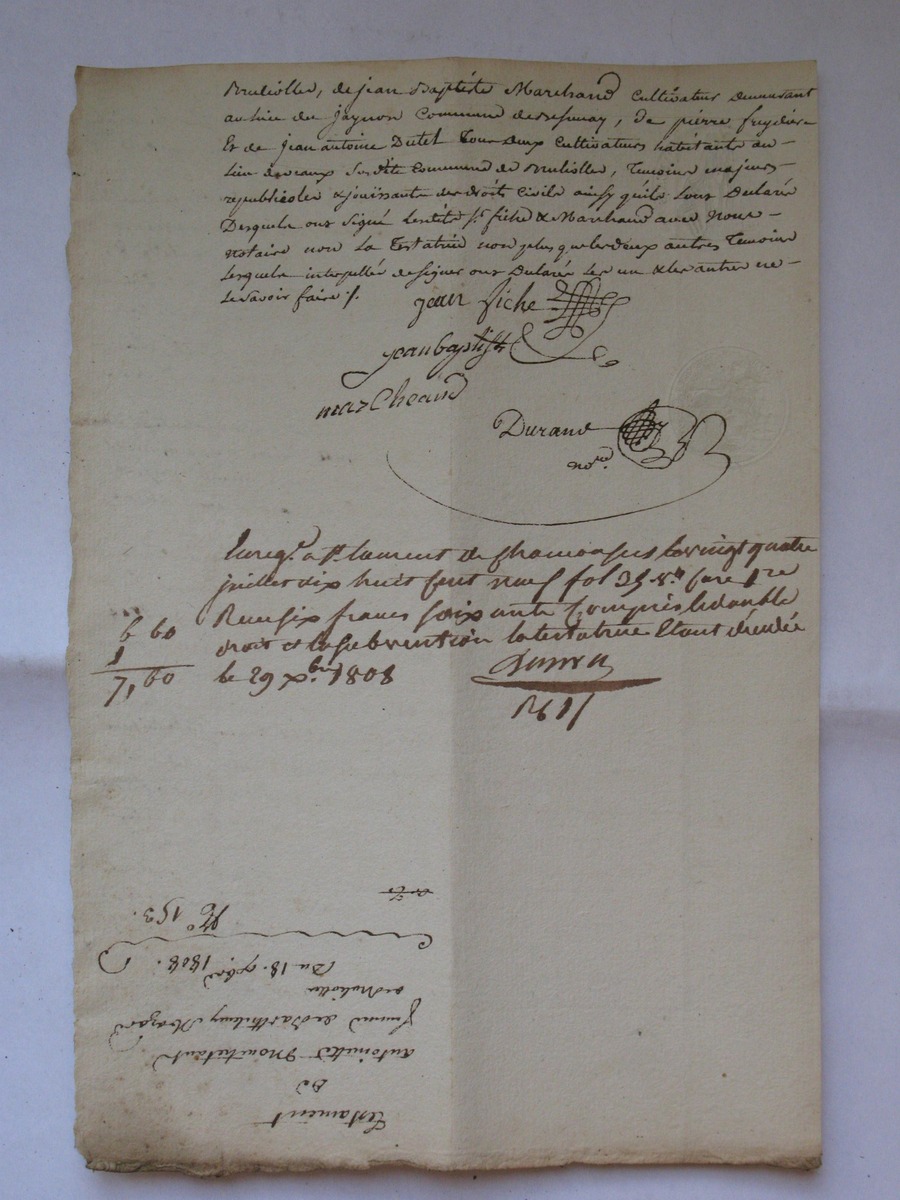 Brullioles, de jean Baptiste Marchand cultivateur demeurant
au lieu de jaynon Commune de Bessenay, de pierre
Et de jean antoine Dutel tous deux cultivateurs habitants au
lieu de vaux susdite Commune de Brullioles, temoins majeurs
republicoles & jouissants des droits civils ainsy quils lont Declaré
Desquels ont signé lesdits srs fiche & Marchand avec Nous
notaire non la Testatrice non plus que les deux autres temoins
lesquels interpellés de signer ont Declaré les un & les autres ne
le savoir faire ./.
jean fiche
jean baptiste
marcheand
Durand
nore.
Enregé. a St. laurent de Chamousset le vingt quatre
juillet dix huit cent neuf fol 35 Vo Case 1re
Reçu six francs soixante Compris le double
droit et la subvention la testatrice Etant décédée
le 29 xbre 1808
6 60
1
7,60
Testament
De
antoinette
femme de Barthelemy
de Brulliolles
Du 18. 1808.
No 153.